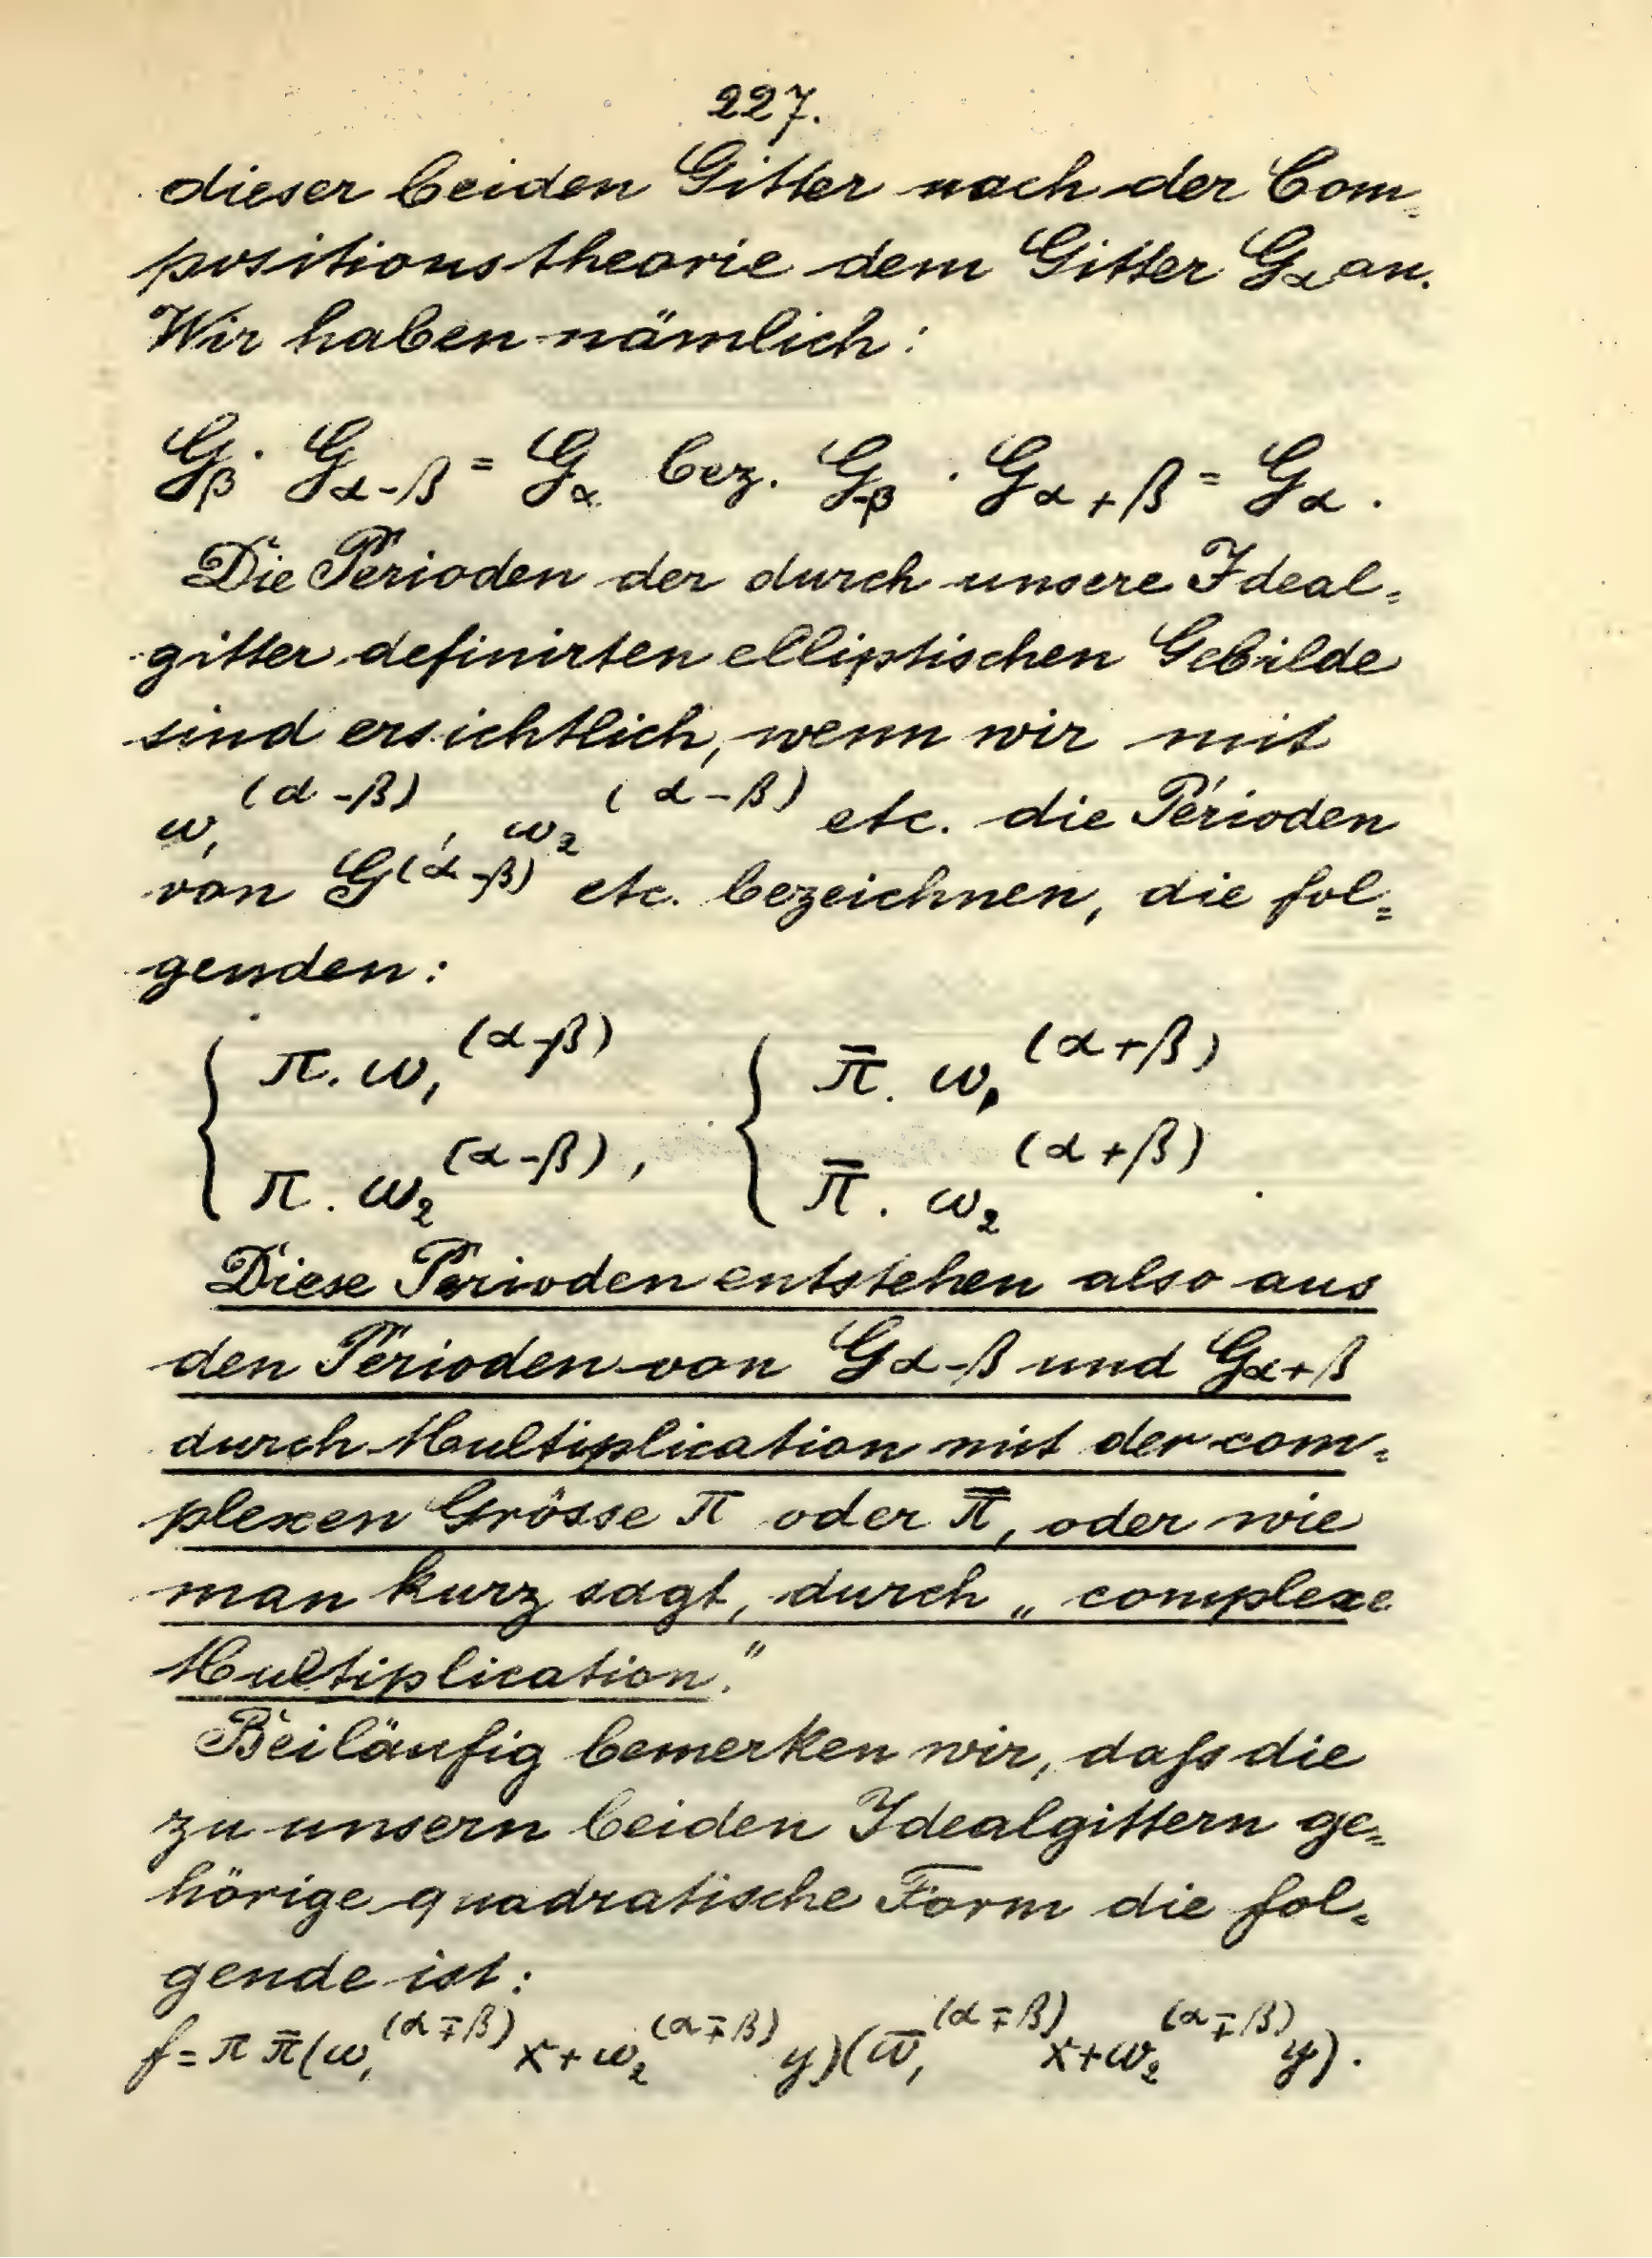 227.
dieser beiden Gitter nach der Com=
positionstheorie dem Gitter G_α an.
Wir haben nämlich:
G_β · G_{α-β} = G_α bez. G_{-β} · G_{α+β} = G_α.
Die Perioden der durch unsere Ideal=
gitter definirten elliptischen Gebilde
sind ersichtlich, wenn wir mit
ω₁^(α-β), ω₂^(α-β) etc. die Perioden
von G^(α-β) etc. bezeichnen, die fol=
genden:
{ π. ω₁^(α-β) { π̄. ω₁^(α+β)
π. ω₂^(α-β), π̄. ω₂^(α+β).
Diese Perioden entstehen also aus
den Perioden von G_{α-β} und G_{α+β}
durch Multiplication mit der com=
plexen Grösse π oder π̄, oder wie
man kurz sagt, durch „complexe
Multiplication."
Beiläufig bemerken wir, daſs die
zu unsern beiden Idealgittern ge=
hörige quadratische Form die fol=
gende ist:
f = π π̄ (ω₁^(α∓β) x + ω₂^(α∓β) y)(ω̄₁^(α∓β) x + ω₂^(α∓β) y).